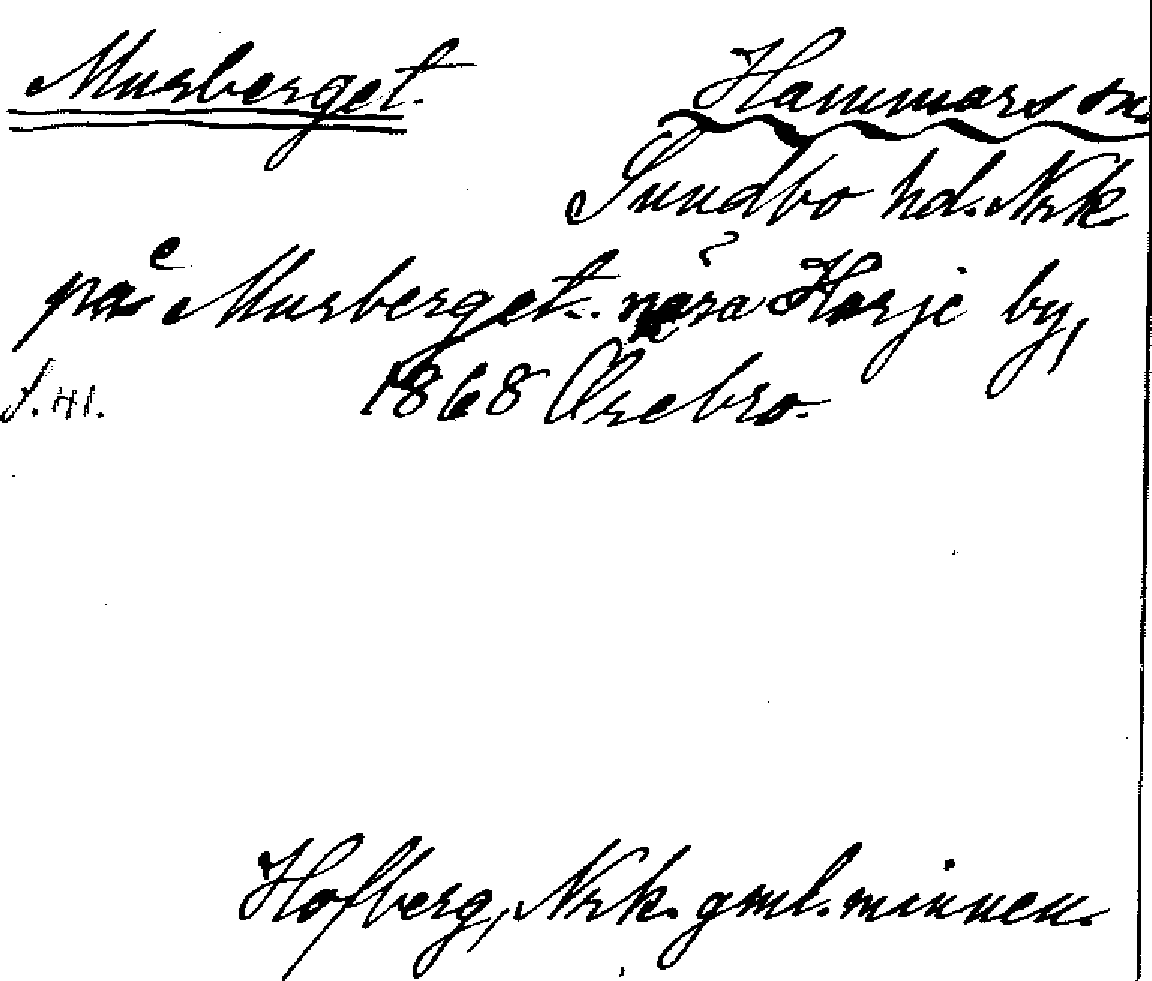 Murberget. Hammars sn.
Sundbo hd. Nrk
på Murberget nära Harje by,
s. 41. 1868 Örebro.
Hofberg, Nrk. gml. minnen.